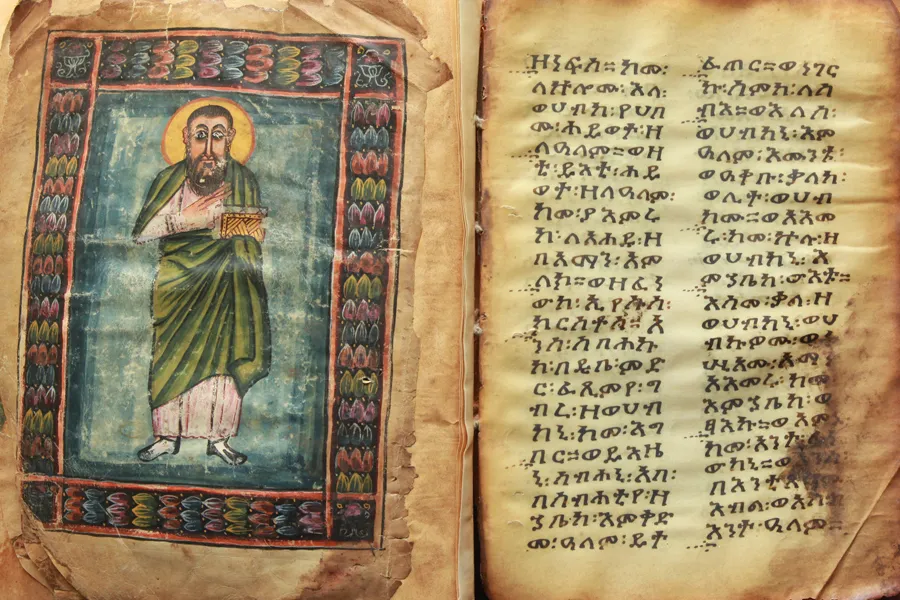 ዘነፍስ። ከመ፡
ለኵሎሙ፡ እለ፡
ወሀብከ፡ የሀቦ
ሙ፡ ሕይወተ፡ ዘ
ለዓለም። ወዛ
ቲ፡ ይእቲ፡ ሕይ
ወት፡ ዘለዓለም፡
ከመ፡ ያእምሩ
ከ፡ ለአሐዱ፡ ዘ
በአማን፡ አም
ላክ። ወዘፈነ
ውከ፡ ኢየሱስ፡
ክርስቶስ። አ
ንሰ፡ ሰባሕኩ
ከ፡ በዲበ፡ ምድ
ር፡ ፈጺምየ፡ ግ
ብረ፡ ዘወሀብ
ከኒ፡ ከመ፡ እግ
በር። ወይእዜ
ኒ፡ ሰብሐኒ፡ አባ፡
በስብሐቲየ፡ ዘ
ኀቤከ፡ እምቅድ
መ፡ ዓለም፡ ይት
ፈጠር። ወነገር
ኩ፡ ስምከ፡ ለሰ
ብእ። ወእለሰ፡
ወሀብከኒ፡ እም
ዓለም፡ እሙንቱ፡
ወዓቀቡ፡ ቃለከ፡
ወሊተ፡ ወሀብ
ከሙ። ወአእመ
ሩ፡ ከመ፡ ኵሉ፡ ዘ
ወሀብከኒ፡ እ
ምኀቤከ፡ ውእቱ።
እስመ፡ ቃለ፡ ዘ
ወሀብከኒ፡ ወሀ
ብኩዎሙ፡
አማን
አእመሩ፡ ከመ
እምኀቤከ፡ ወ
ፃእኩ። ወአም
ከመ፡ አንተ፡
ውከኒ።
በእንቲአ
እስእል፡ ወአኮ
እንተ፡ ዓለም።